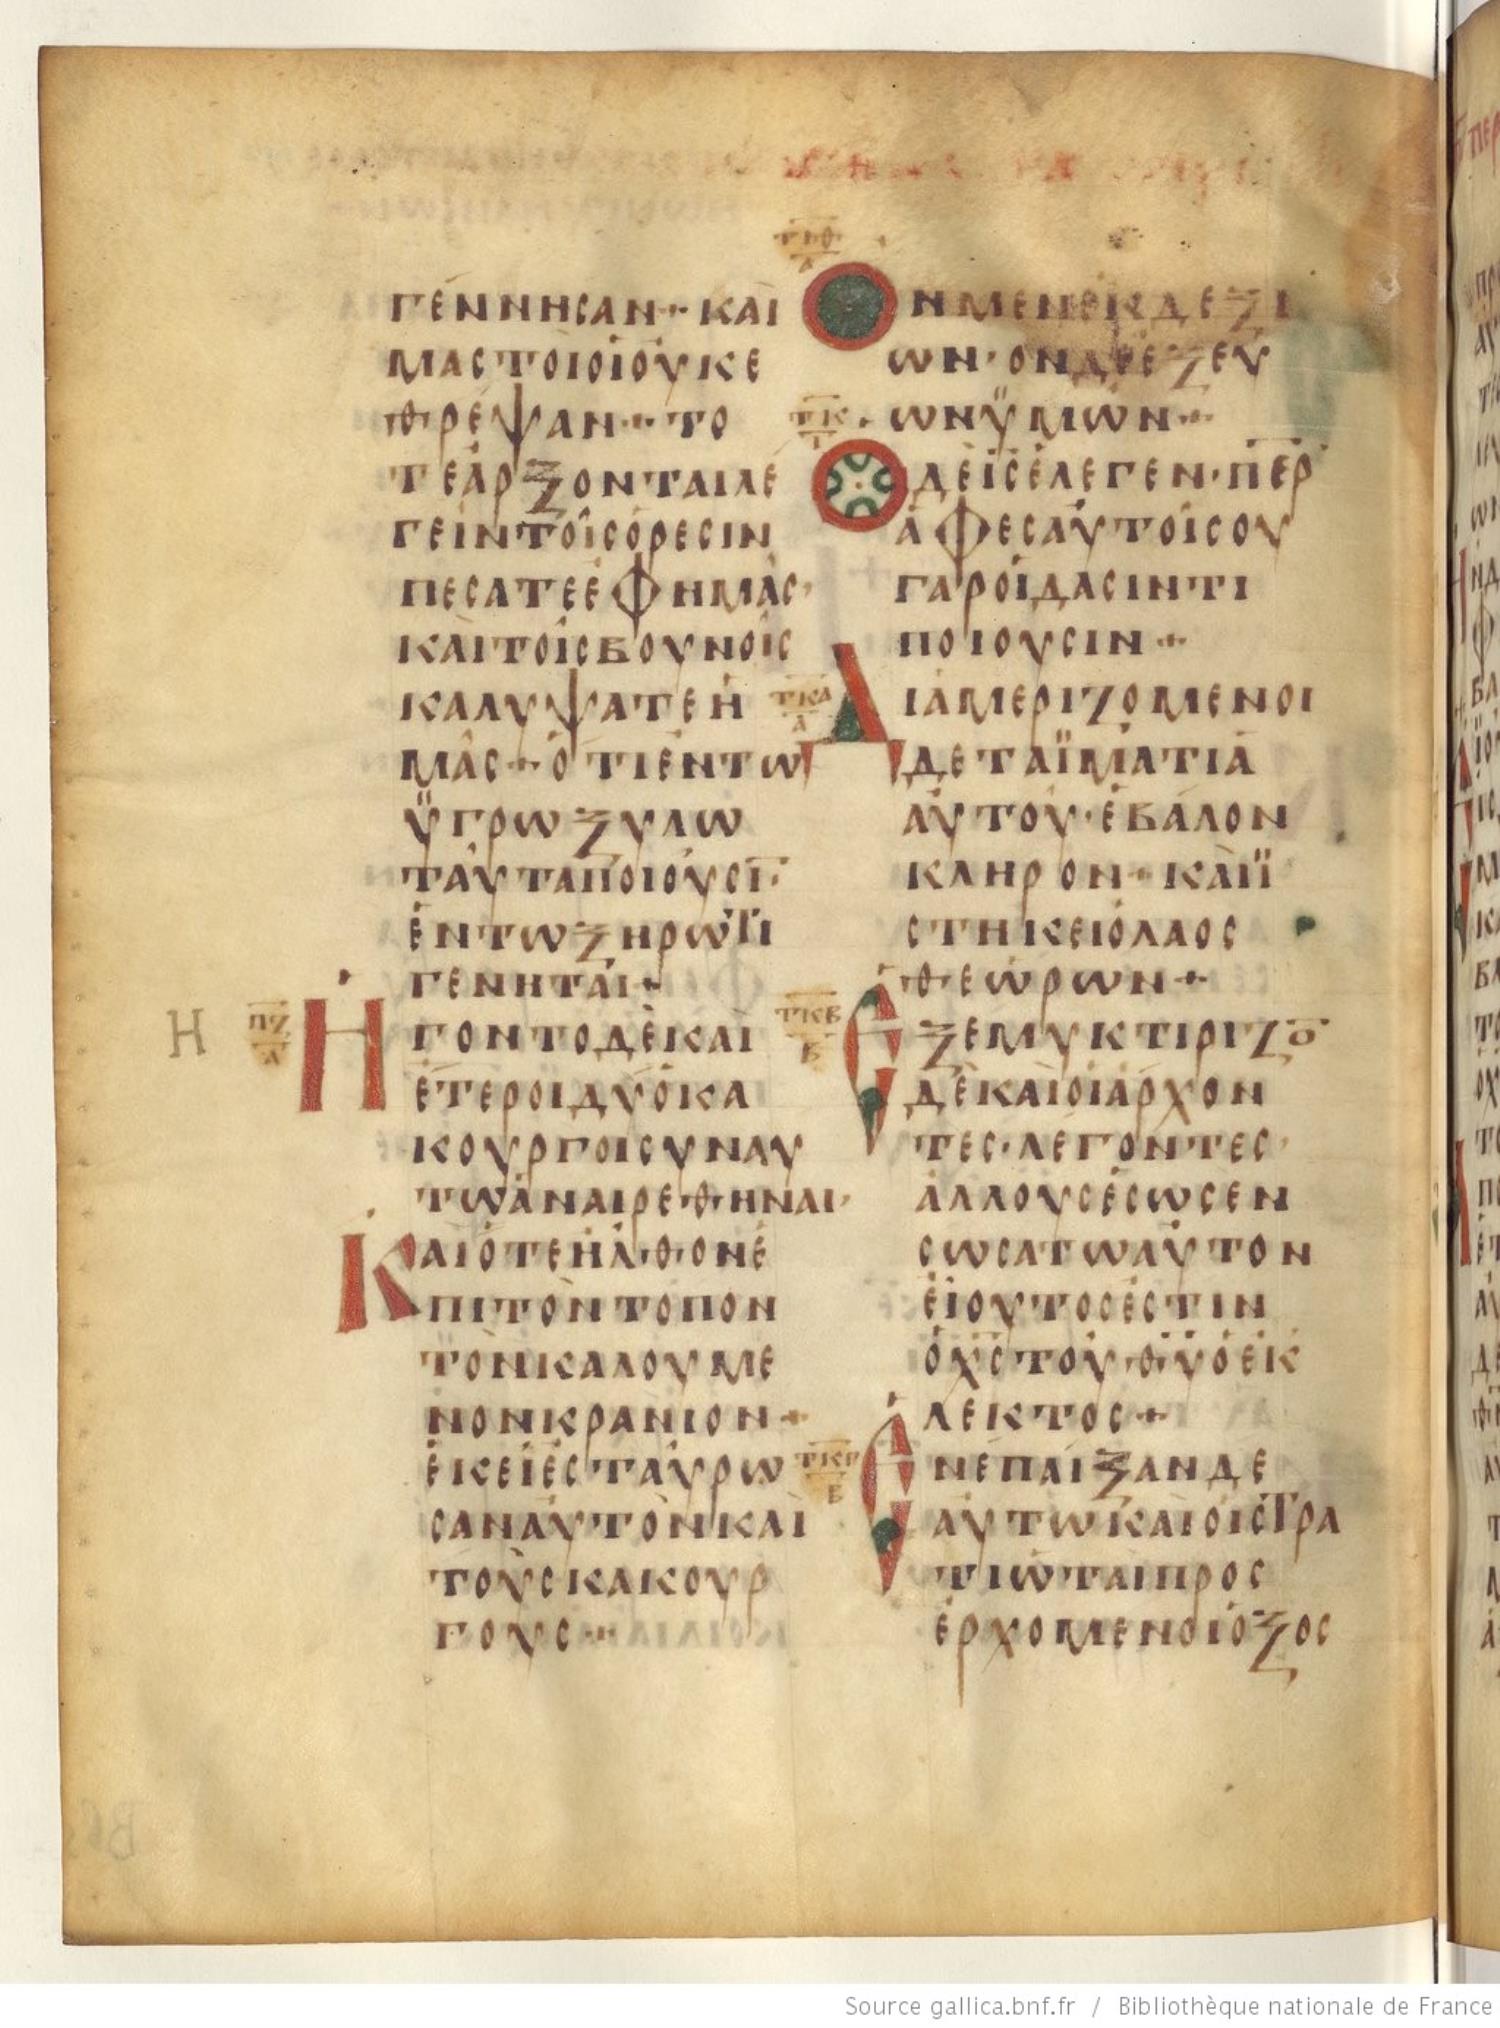 ΓΕΝΝΗCΑΝ· ΚΑΙ
ΜΑCΤΟΙΟΙΟΥΚΕ
ΘΡΕΨΑΝ· ΤΟ
ΤΕΑΡΞΟΝΤΑΙΛΕ
ΓΕΙΝΤΟΙCΟΡΕCΙΝ
ΠΕCΑΤΕΕΦΗΜΑC·
ΚΑΙΤΟΙCΒΟΥΝΟΙC
ΚΑΛΥΨΑΤΕΗ
ΜΑC+ΟΤΙΕΝΤΩ
ΫΓΡΩΞΥΛΩ
ΤΑΥΤΑΠΟΙΟΥCΙ̅·
ΕΝΤΩΞΗΡΩΤΙ
ΓΕΝΗΤΑΙ+
Η
ΠΖ
Α
ΗΓΟΝΤΟΔΕΚΑΙ
ΕΤΕΡΟΙΔΥΟΚΑ
ΚΟΥΡΓΟΙCΥΝΑΥ
ΤΩΑΝΑΙΡΕΘΗΝΑΙ·
ΚΑΙΟΤΕΗΛΘΟΝΕ
ΠΙΤΟΝΤΟΠΟΝ
ΤΟΝΚΑΛΟΥΜΕ
ΝΟΝΚΡΑΝΙΟΝ+
ΕΚΕΙΕCΤΑΥΡΩ
CΑΝΑΥΤΟΝΚΑΙ
ΤΟΥCΚΑΚΟΥΡ
ΓΟΥC+
ΤΙΘ
Α
ΟΝΜΕΝΕΚΔΕΞΙ
ΩΝ·ΟΝΔΕΕΞΕΥ
ΩΝΫΜΩΝ+
ΤΚ
Ι
ΟΔΕΙ̅C̅ΕΛΕΓΕΝ·Π̅Ε̅Ρ̅
ΑΦΕCΑΥΤΟΙCΟΥ
ΓΑΡΟΙΔΑCΙΝΤΙ
ΠΟΙΟΥCΙΝ+
ΤΚΑ
Α
ΔΙΑΜΕΡΙΖΟΜΕΝΟΙ
ΔΕΤΑΪΜΑΤΙΑ
ΑΥΤΟΥ·ΕΒΑΛΟΝ
ΚΛΗΡΟΝ+ΚΑΙΪ
CΤΗΚΕΙΟΛΑΟC
ΘΕΩΡΩΝ+
ΤΚΒ
Β
ΕΞΕΜΥΚΤΙΡΙΖΟ̅
ΔΕΚΑΙΟΙΑΡΧΟΝ
ΤΕC·ΛΕΓΟΝΤΕC·
ΑΛΛΟΥCΕCΩCΕΝ
CΩCΑΤΩΑΥΤΟΝ
ΕΙΟΥΤΟCΕCΤΙΝ
ΟΧ̅C̅ΤΟΥΘ̅Υ̅ΟΕΚ
ΛΕΚΤΟC+
ΤΚΓ
Β
ΕΝΕΠΑΙΞΑΝΔΕ
ΑΥΤΩΚΑΙΟΙCΤΡΑ
ΤΙΩΤΑΙΠΡΟC
ΕΡΧΟΜΕΝΟΙΟΞΟC
Source gallica.bnf.fr / Bibliothèque nationale de France